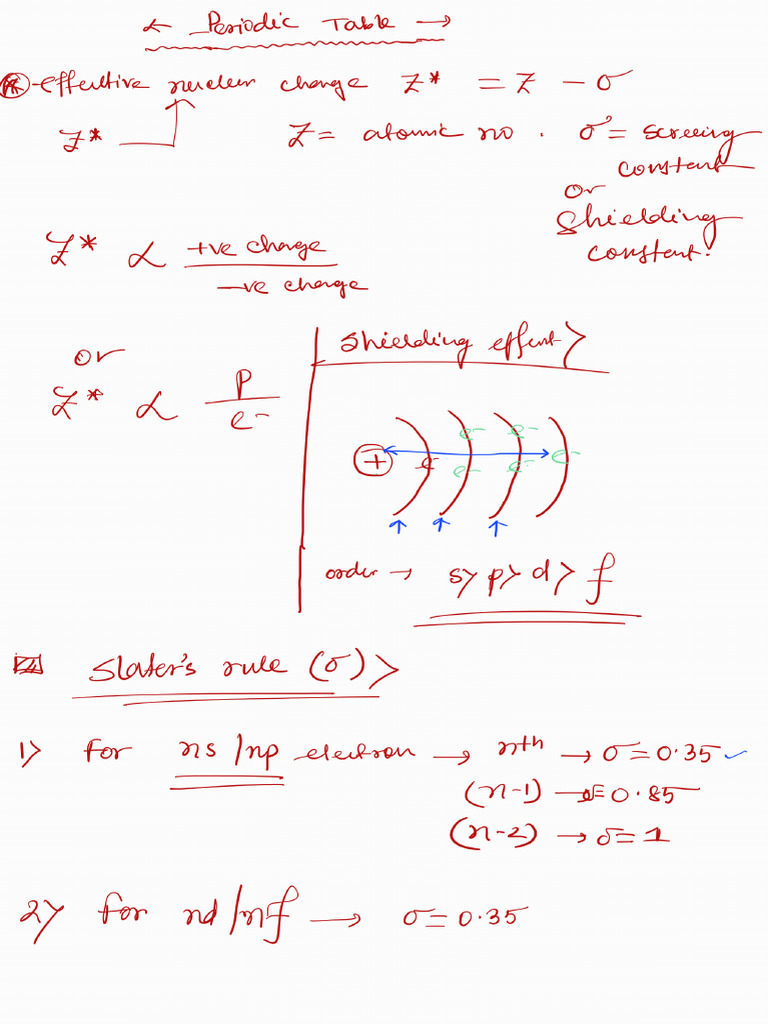 ← Periodic Table →
* effective nuclear charge Z* = Z − σ
Z*
Z = atomic no . σ = screeing
constant
or
Shielding
constant.
Z* ∝ +ve charge / −ve charge
or
Z* ∝ p / e−
Shielding effect >
+ e− e− e− e− e− e−
order → s > p > d > f
Slater's rule (σ) >
1) for ns/np electron → nth → σ = 0.35 ✓
(n-1) → σ = 0.85
(n-2) → σ = 1
2) for nd/nf → σ = 0.35